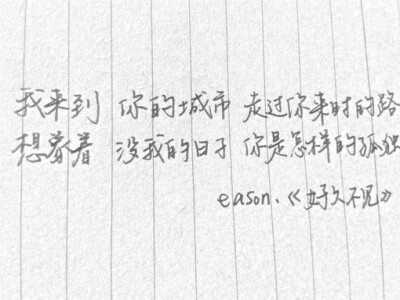 我来到 你的城市 走过你来时的路
想象着 没我的日子 你是怎样的孤独
eason.《好久不见》